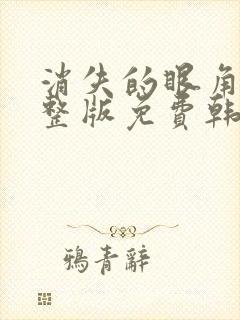 消失的眼角
整版免费韩
鴉青辭